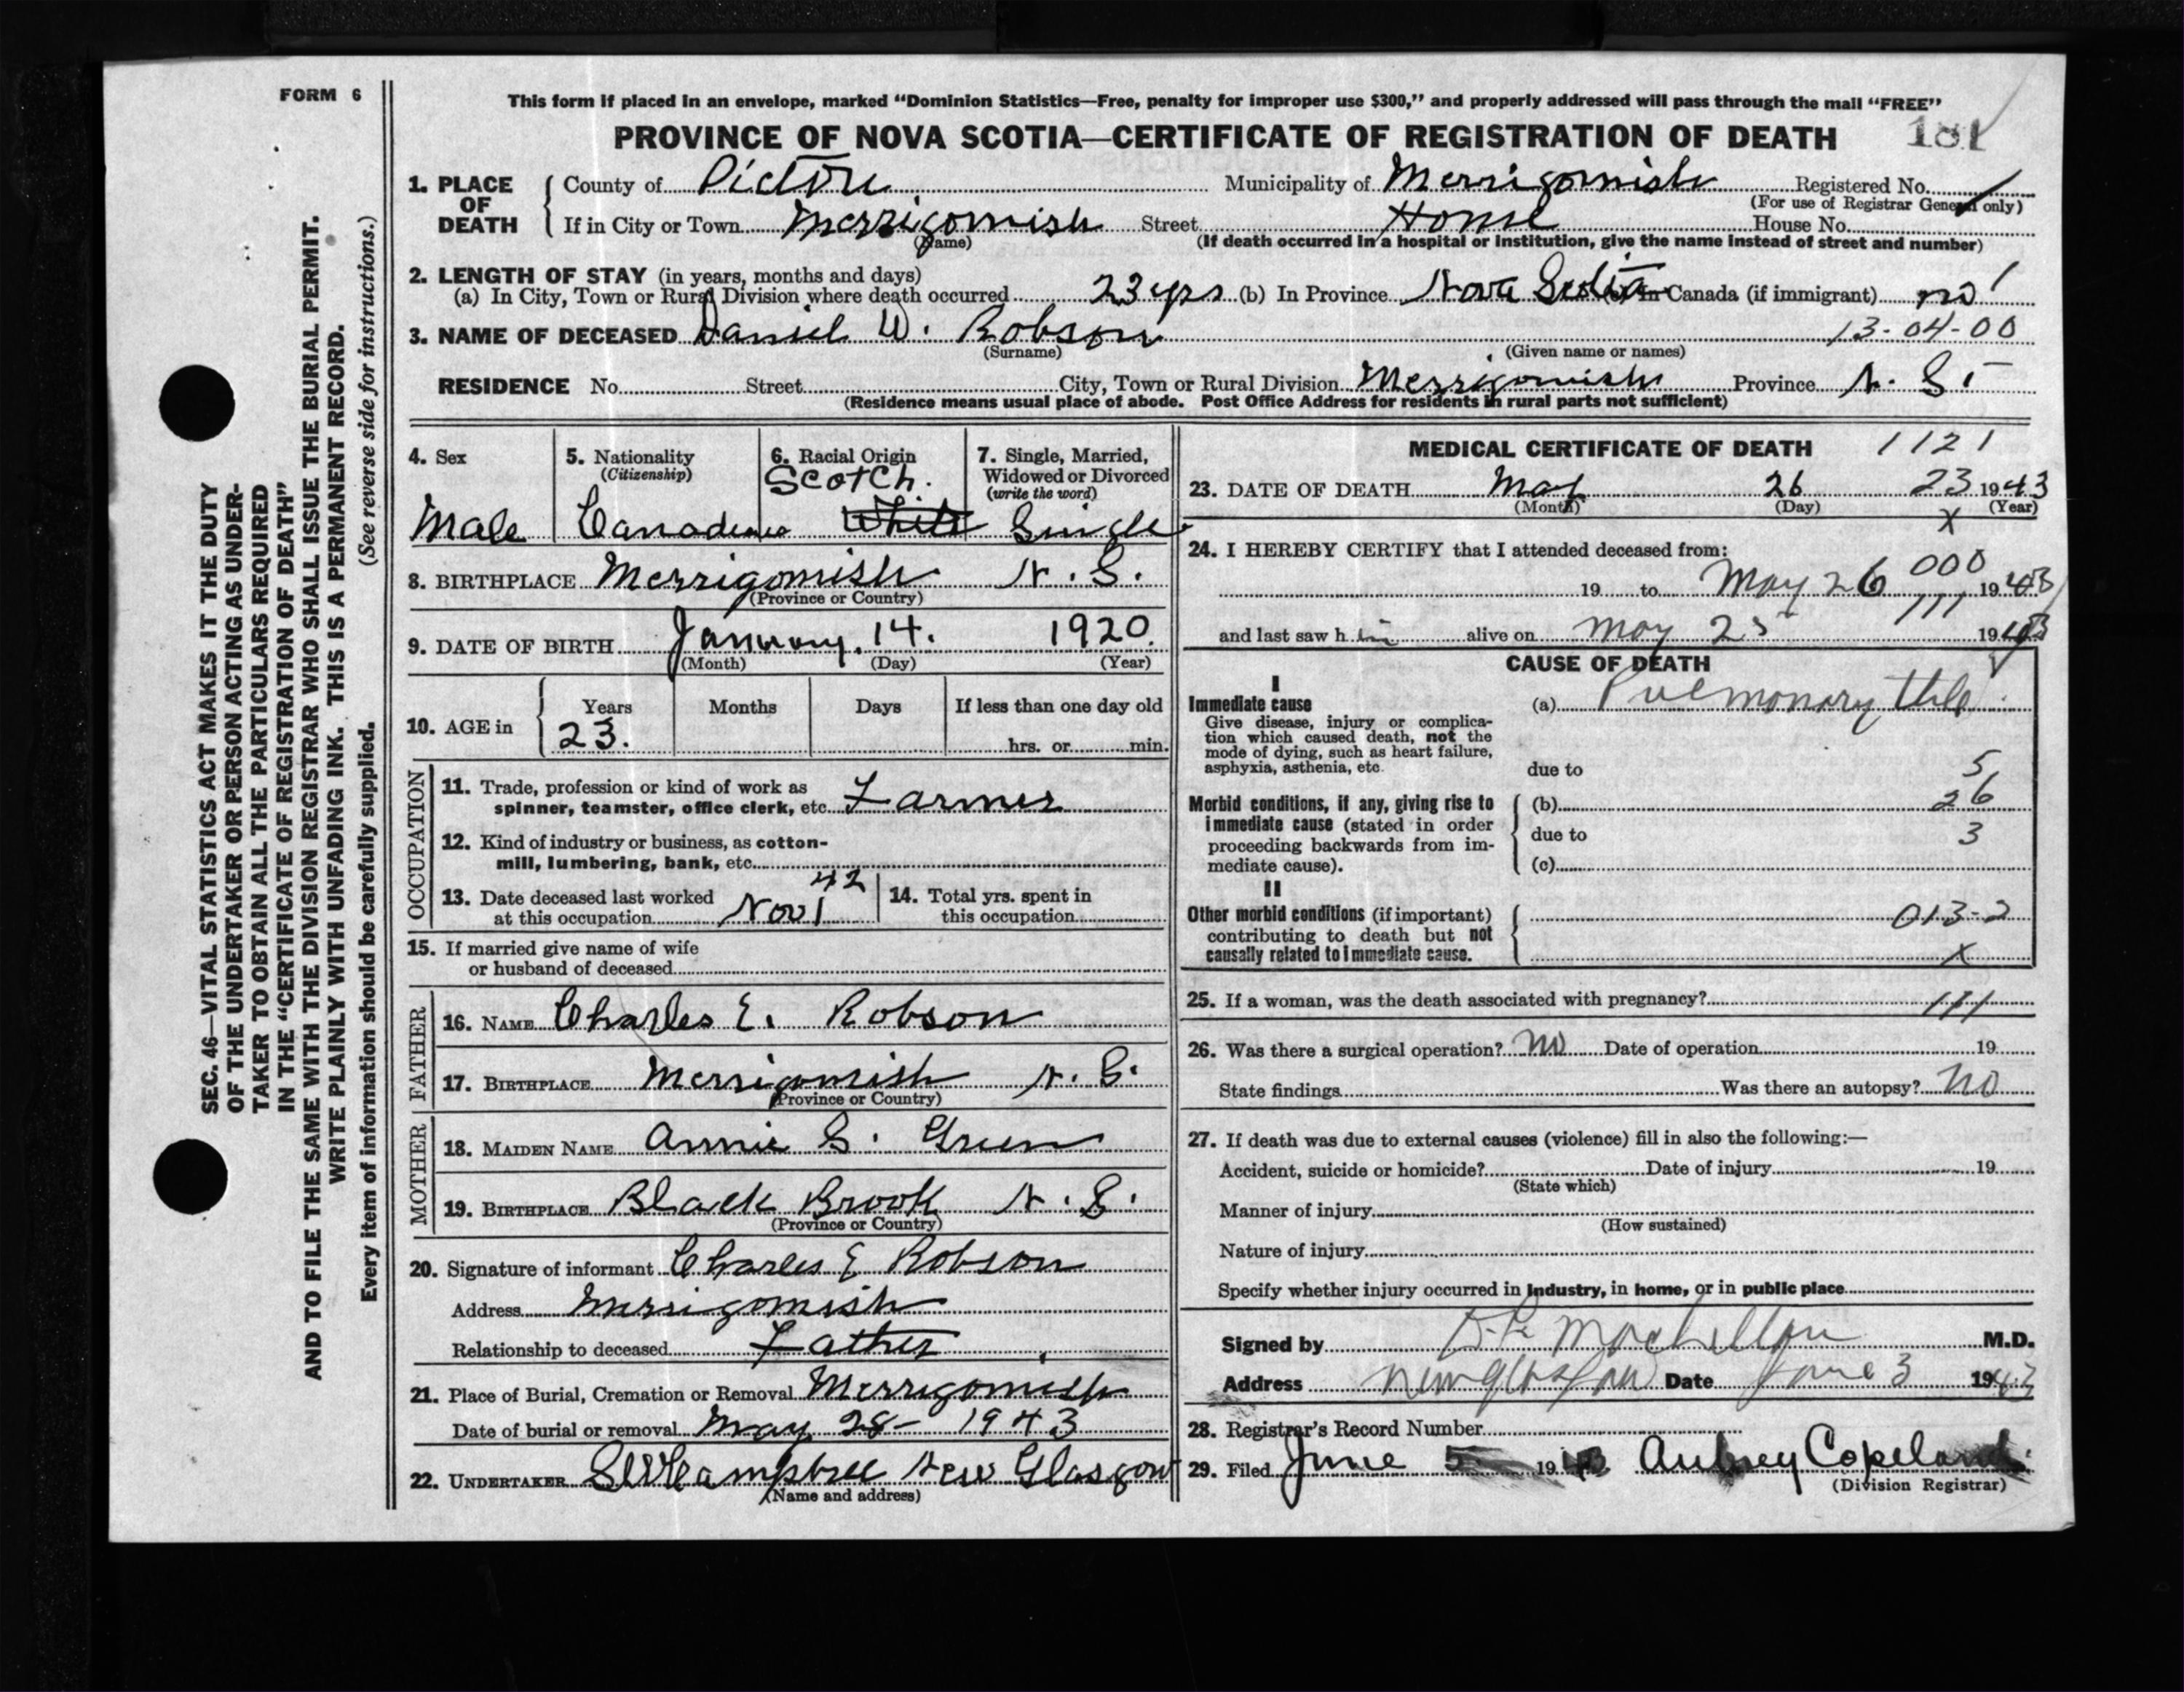 FORM 6
This form if placed in an envelope, marked “Dominion Statistics—Free, penalty for improper use $300,” and properly addressed will pass through the mail “FREE”
PROVINCE OF NOVA SCOTIA—CERTIFICATE OF REGISTRATION OF DEATH 181
1. PLACE OF DEATH
County of Pictou Municipality of Merrigomish Registered No.
(For use of Registrar General only)
If in City or Town Merrigomish Street Home House No.
(Name) (If death occurred in a hospital or institution, give the name instead of street and number)
2. LENGTH OF STAY (in years, months and days)
(a) In City, Town or Rural Division where death occurred 23 yrs (b) In Province Nova Scotia In Canada (if immigrant) no
3. NAME OF DECEASED Daniel W. Robson 13-04-00
(Surname) (Given name or names)
RESIDENCE No. Street City, Town or Rural Division Merrigomish Province N. S.
(Residence means usual place of abode. Post Office Address for residents in rural parts not sufficient)
4. Sex
Male
5. Nationality
(Citizenship)
Canadian
6. Racial Origin
Scotch.
White
7. Single, Married,
Widowed or Divorced
(write the word)
Single
8. BIRTHPLACE Merrigomish N. S.
(Province or Country)
9. DATE OF BIRTH January. 14. 1920.
(Month) (Day) (Year)
10. AGE in
Years Months Days If less than one day old
23. hrs. or min.
OCCUPATION
11. Trade, profession or kind of work as
spinner, teamster, office clerk, etc. Farmer
12. Kind of industry or business, as cotton-
mill, lumbering, bank, etc.
13. Date deceased last worked
at this occupation Nov 1 42
14. Total yrs. spent in
this occupation
15. If married give name of wife
or husband of deceased
FATHER
16. NAME Charles E. Robson
17. BIRTHPLACE Merrigomish N. S.
(Province or Country)
MOTHER
18. MAIDEN NAME Annie S. Green
19. BIRTHPLACE Black Brook N. S.
(Province or Country)
20. Signature of informant Charles E Robson
Address Merrigomish
Relationship to deceased Father
21. Place of Burial, Cremation or Removal Merrigomish
Date of burial or removal May 28- 1943
22. UNDERTAKER New Glasgow
(Name and address)
MEDICAL CERTIFICATE OF DEATH 1121
23. DATE OF DEATH May 26 23 1943
(Month) (Day) (Year)
X
24. I HEREBY CERTIFY that I attended deceased from:
000
19 to May 26 1943
111
and last saw h im alive on May 25 1943
CAUSE OF DEATH
I
Immediate cause
Give disease, injury or complica-
tion which caused death, not the
mode of dying, such as heart failure,
asphyxia, asthenia, etc.
(a) Pulmonary
due to 5
Morbid conditions, if any, giving rise to
immediate cause (stated in order
proceeding backwards from im-
mediate cause).
(b) 26
due to 3
(c)
II
Other morbid conditions (if important)
contributing to death but not
causally related to immediate cause.
013-2
X
25. If a woman, was the death associated with pregnancy? 111
26. Was there a surgical operation? no Date of operation 19
State findings Was there an autopsy? no
27. If death was due to external causes (violence) fill in also the following:—
Accident, suicide or homicide? Date of injury 19
(State which)
Manner of injury
(How sustained)
Nature of injury
Specify whether injury occurred in industry, in home, or in public place
Signed by MacLellan M.D.
Address New Glasgow Date June 3 1943
28. Registrar's Record Number
29. Filed June 5 1943 Aubrey Copeland
(Division Registrar)
SEC. 46—VITAL STATISTICS ACT MAKES IT THE DUTY
OF THE UNDERTAKER OR PERSON ACTING AS UNDER-
TAKER TO OBTAIN ALL THE PARTICULARS REQUIRED
IN THE “CERTIFICATE OF REGISTRATION OF DEATH”
AND TO FILE THE SAME WITH THE DIVISION REGISTRAR WHO SHALL ISSUE THE BURIAL PERMIT.
WRITE PLAINLY WITH UNFADING INK. THIS IS A PERMANENT RECORD.
Every item of information should be carefully supplied. (See reverse side for instructions.)